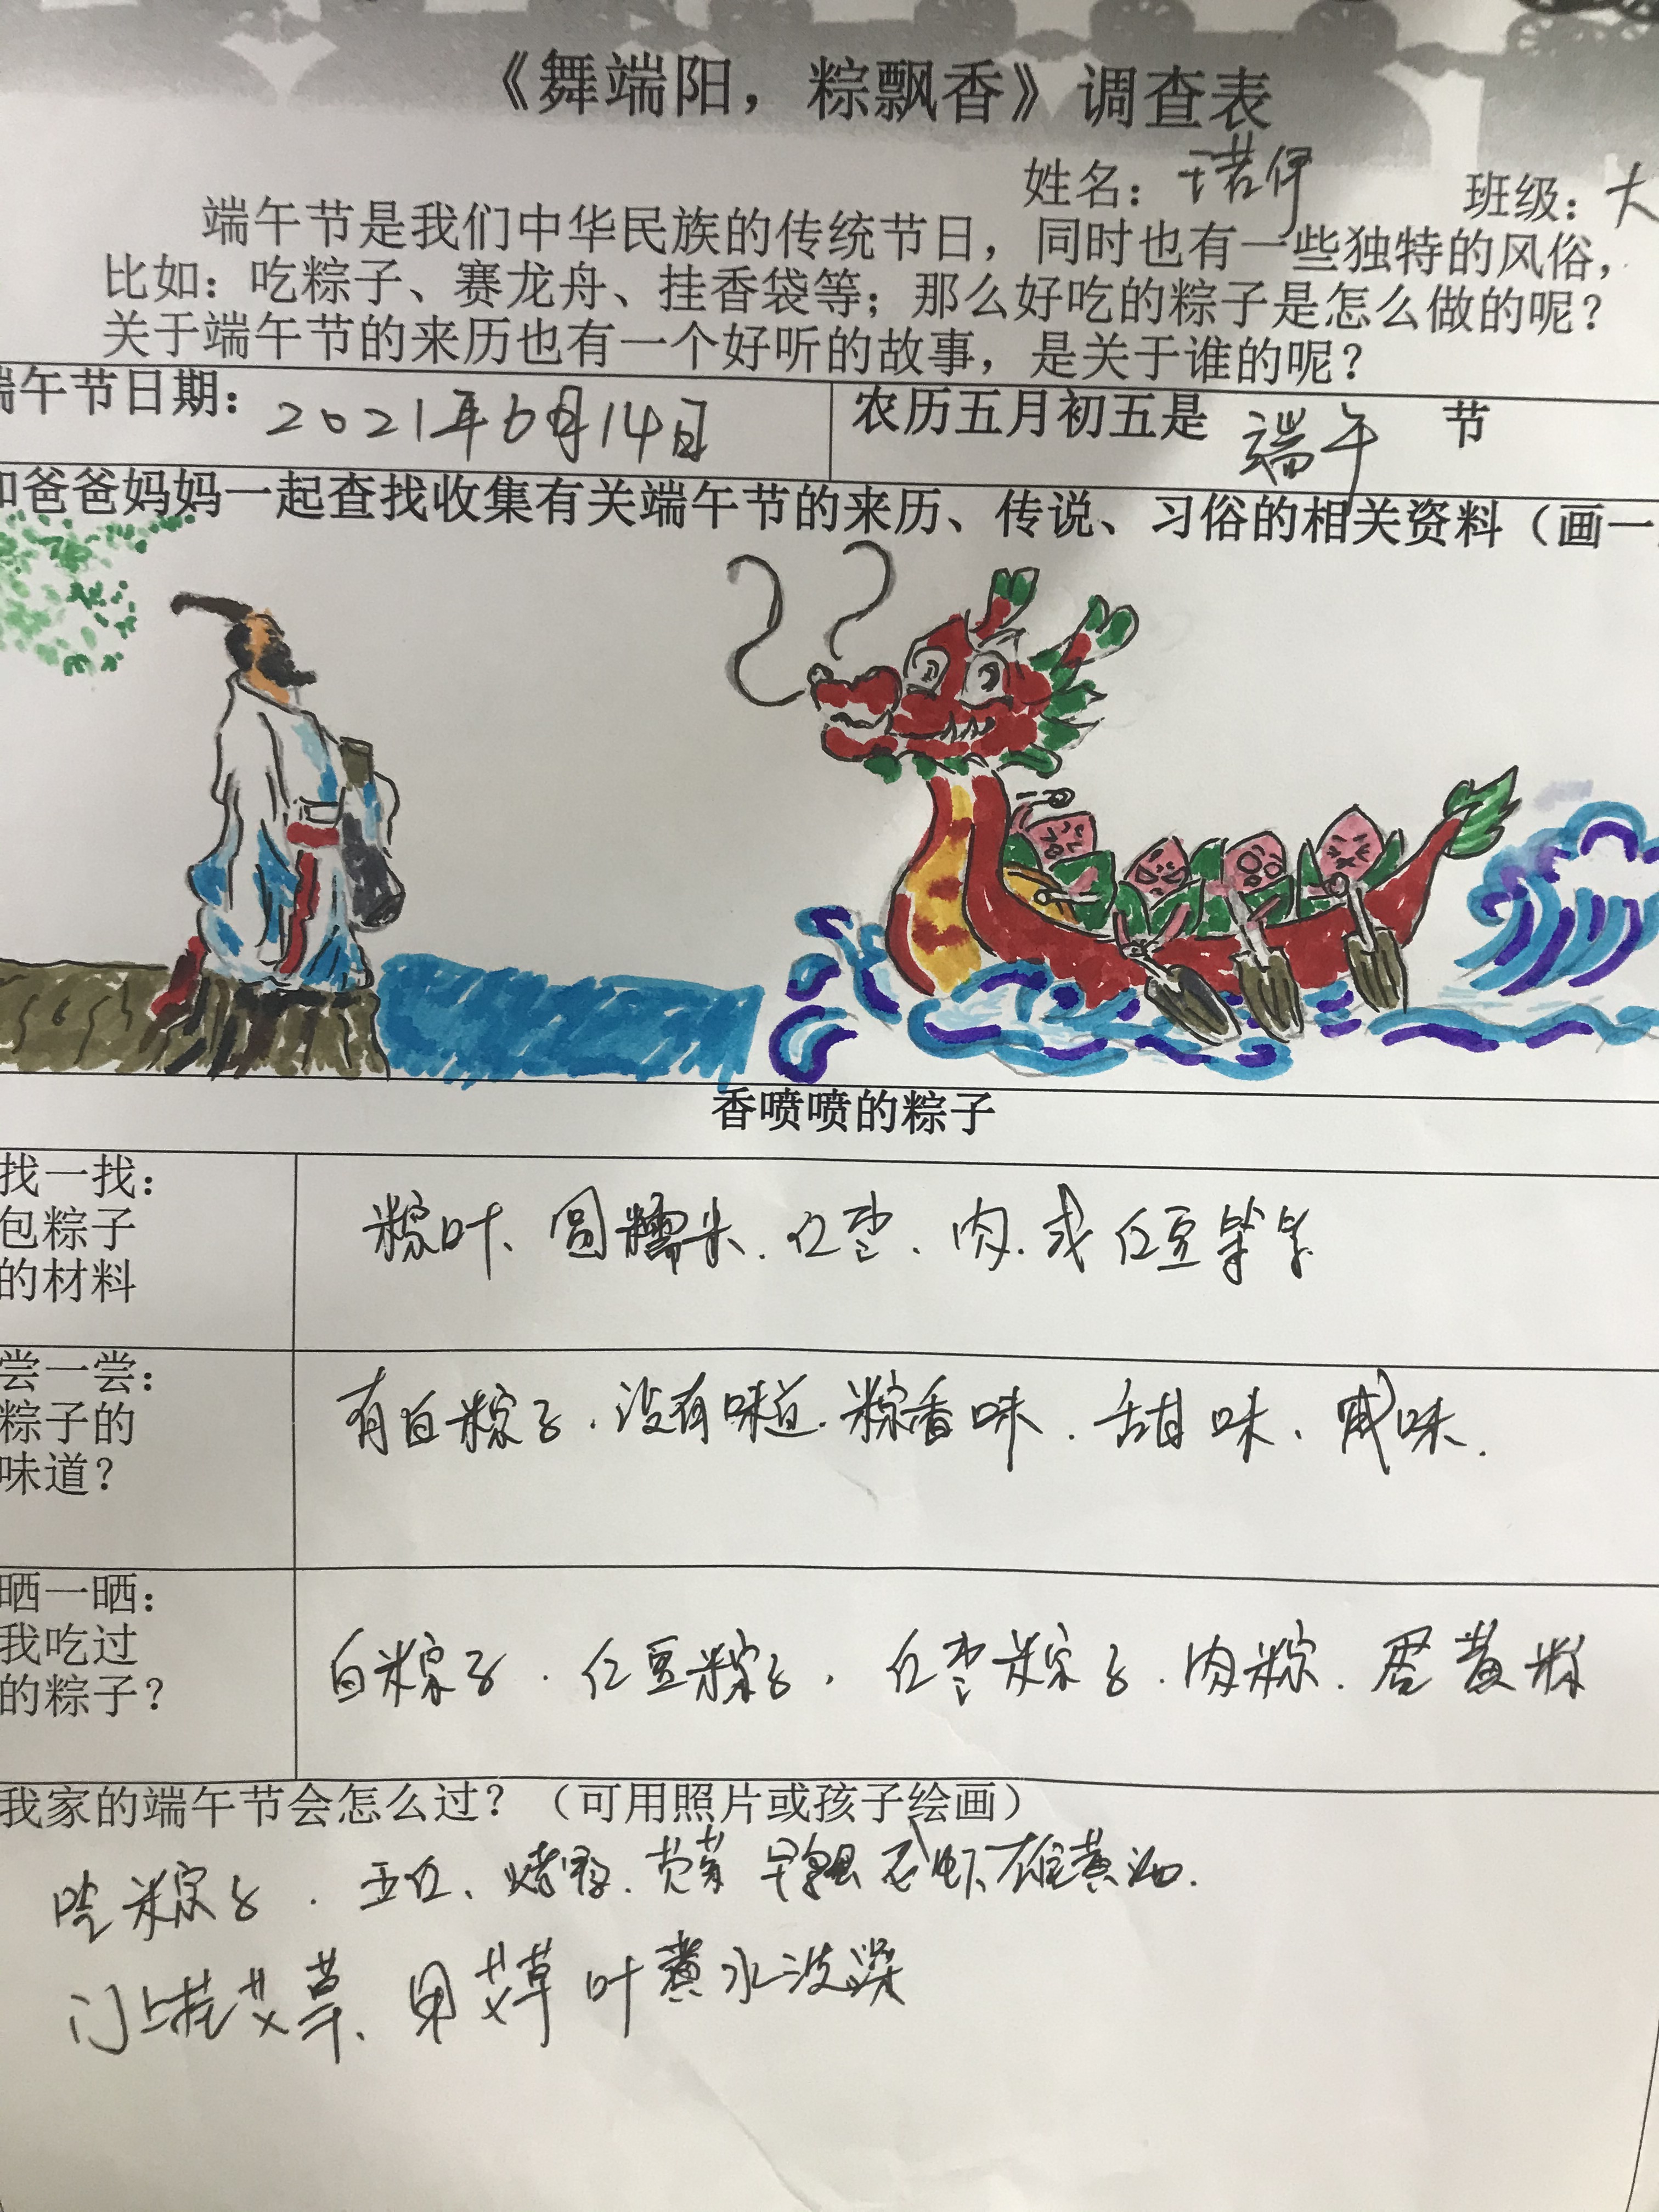 《舞端阳，粽飘香》调查表
姓名：王诺伊 班级：大
端午节是我们中华民族的传统节日，同时也有一些独特的风俗，
比如：吃粽子、赛龙舟、挂香袋等；那么好吃的粽子是怎么做的呢？
关于端午节的来历也有一个好听的故事，是关于谁的呢？
端午节日期：2021年6月14日 农历五月初五是 端午 节
和爸爸妈妈一起查找收集有关端午节的来历、传说、习俗的相关资料（画一
香喷喷的粽子
找一找：
包粽子
的材料
粽叶、圆糯米、红枣、肉、或红豆等等
尝一尝：
粽子的
味道？
有白粽子、没有味道、粽香味、甜味、咸味.
晒一晒：
我吃过
的粽子？
白粽子、红豆粽子、红枣粽子、肉粽、蛋黄粽
我家的端午节会怎么过？（可用照片或孩子绘画）
吃粽子、五红、烤鸭、苋菜 虾、雄黄酒.
门上挂艾草、用艾草叶煮水洗澡